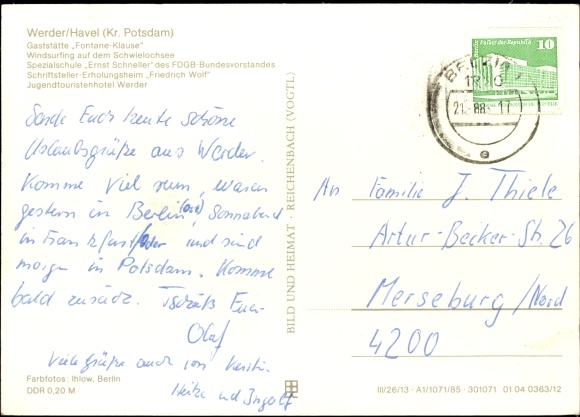 Werder/Havel (Kr. Potsdam)
Gaststätte „Fontane-Klause"
Windsurfing auf dem Schwielochsee
Spezialschule „Ernst Schneller" des FDGB-Bundesvorstandes
Schriftsteller-Erholungsheim „Friedrich Wolf"
Jugendtouristenhotel Werder
Sende Euch heute schöne
Urlaubsgrüße aus Werder.
Komme viel rum, waren
gestern in Berlin (Ost), Sonnabend
in Frankfurt/Oder und sind
morgen in Potsdam. Komme
bald zurück. Tschüß Euer
Olaf
Viele Grüße auch von Kerstin
Heike und Ingolf
Farbfotos: Ihlow, Berlin
DDR 0,20 M
BILD UND HEIMAT · REICHENBACH (VOGTL)
Palast der Republik
10
BELZIG
21. 88. 17
e
An Familie J. Thiele
Artur-Becker-Str. 26
Merseburg/Nord
4200
III/26/13 · A1/1071/85 · 301071 01 04 0363/12